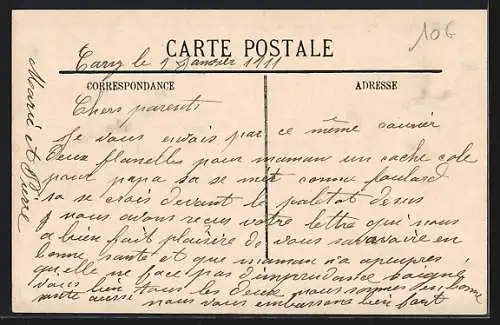 106
CARTE POSTALE
Tavy le 1 Janvier 1911
CORRESPONDANCE
ADRESSE
Chers parents
Je vous envais par ce même courrier
deux flanelles pour maman un cache cole
pour papa sa se met comme foulard
sa se crois devant le paletot desus
nous avons recus votre lettre qui nous
a bien fait plaisire de vous savavaire en
bonne santé et que maman n'a
qu'elle ne face pas d'imprudance soigné
vous bien tous les deux nous sommes en bonne
sante aussi nous vous embrassons bien fort
Marie et Pierre